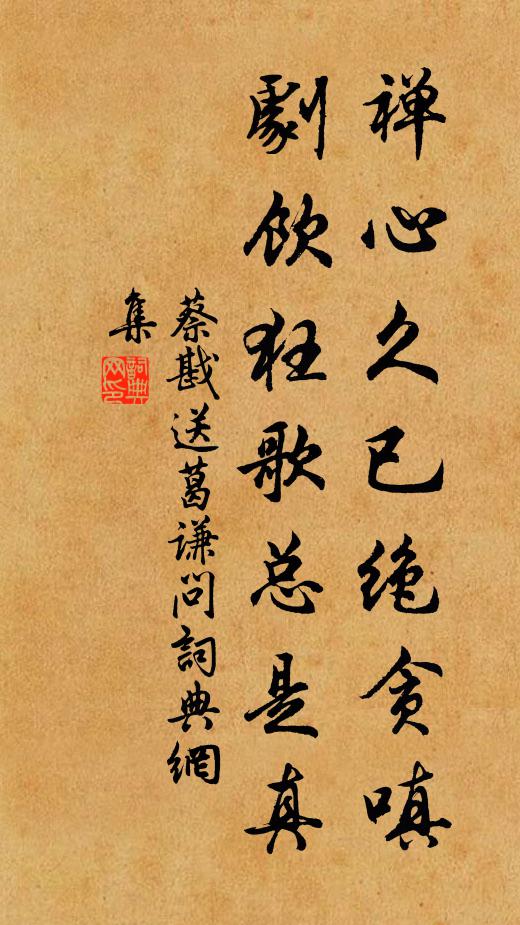 禅心久已绝贪嗔
劇饮狂歌总是真
蔡戡送葛谦问詞典網
集
詞典
网印